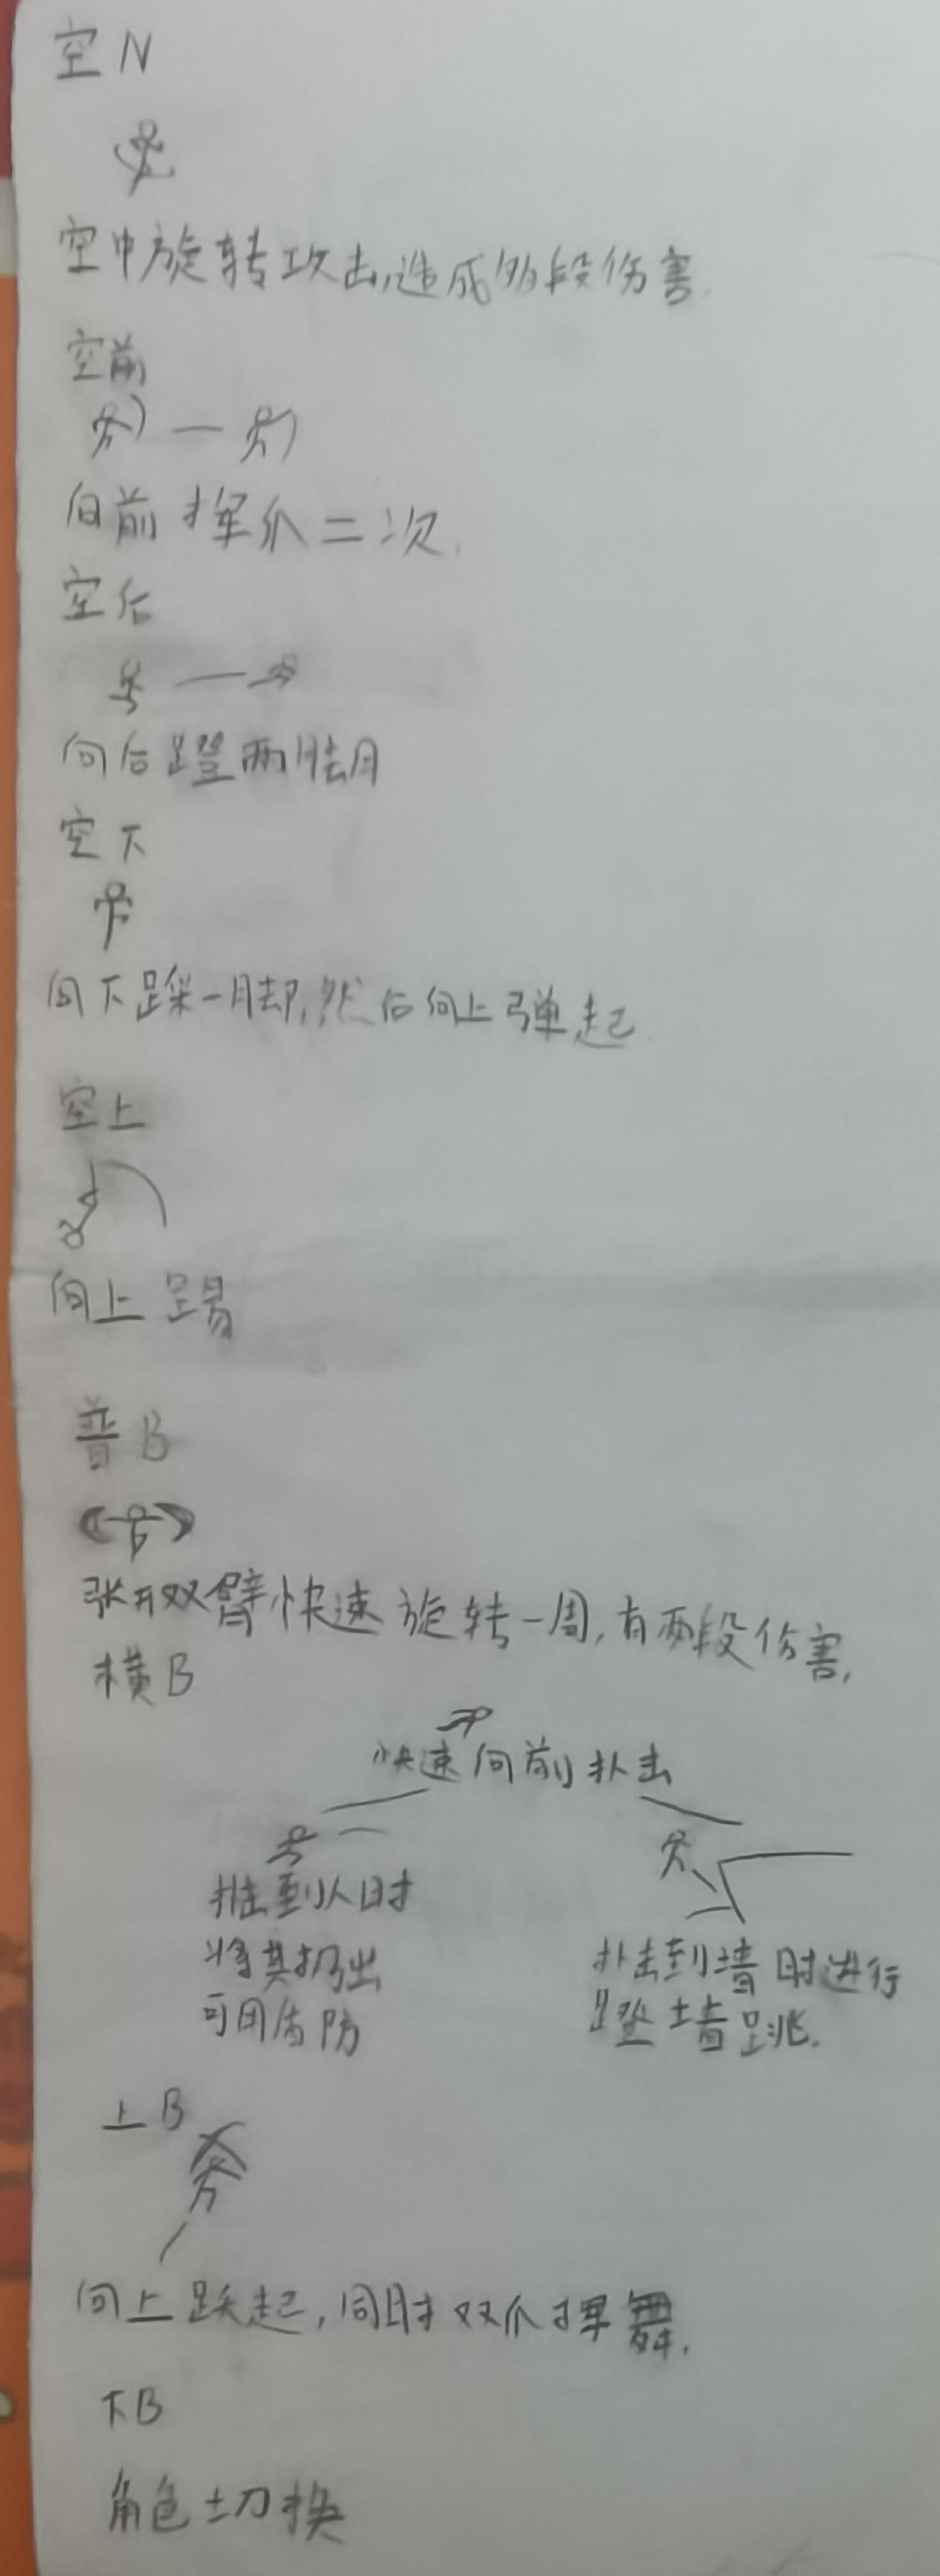 空N
空中旋转攻击,造成多段伤害.
空前
向前挥爪二次.
空后
向后蹬两脚
空下
向下踩一脚,然后向上弹起
空上
向上踢
普B
张开双臂快速旋转一周,有两段伤害,
横B
快速向前扑击
撞到人时
将其扔出
可用盾防
扑击到墙时进行
蹬墙跳.
上B
向上跃起,同时双爪挥舞.
下B
角色切换